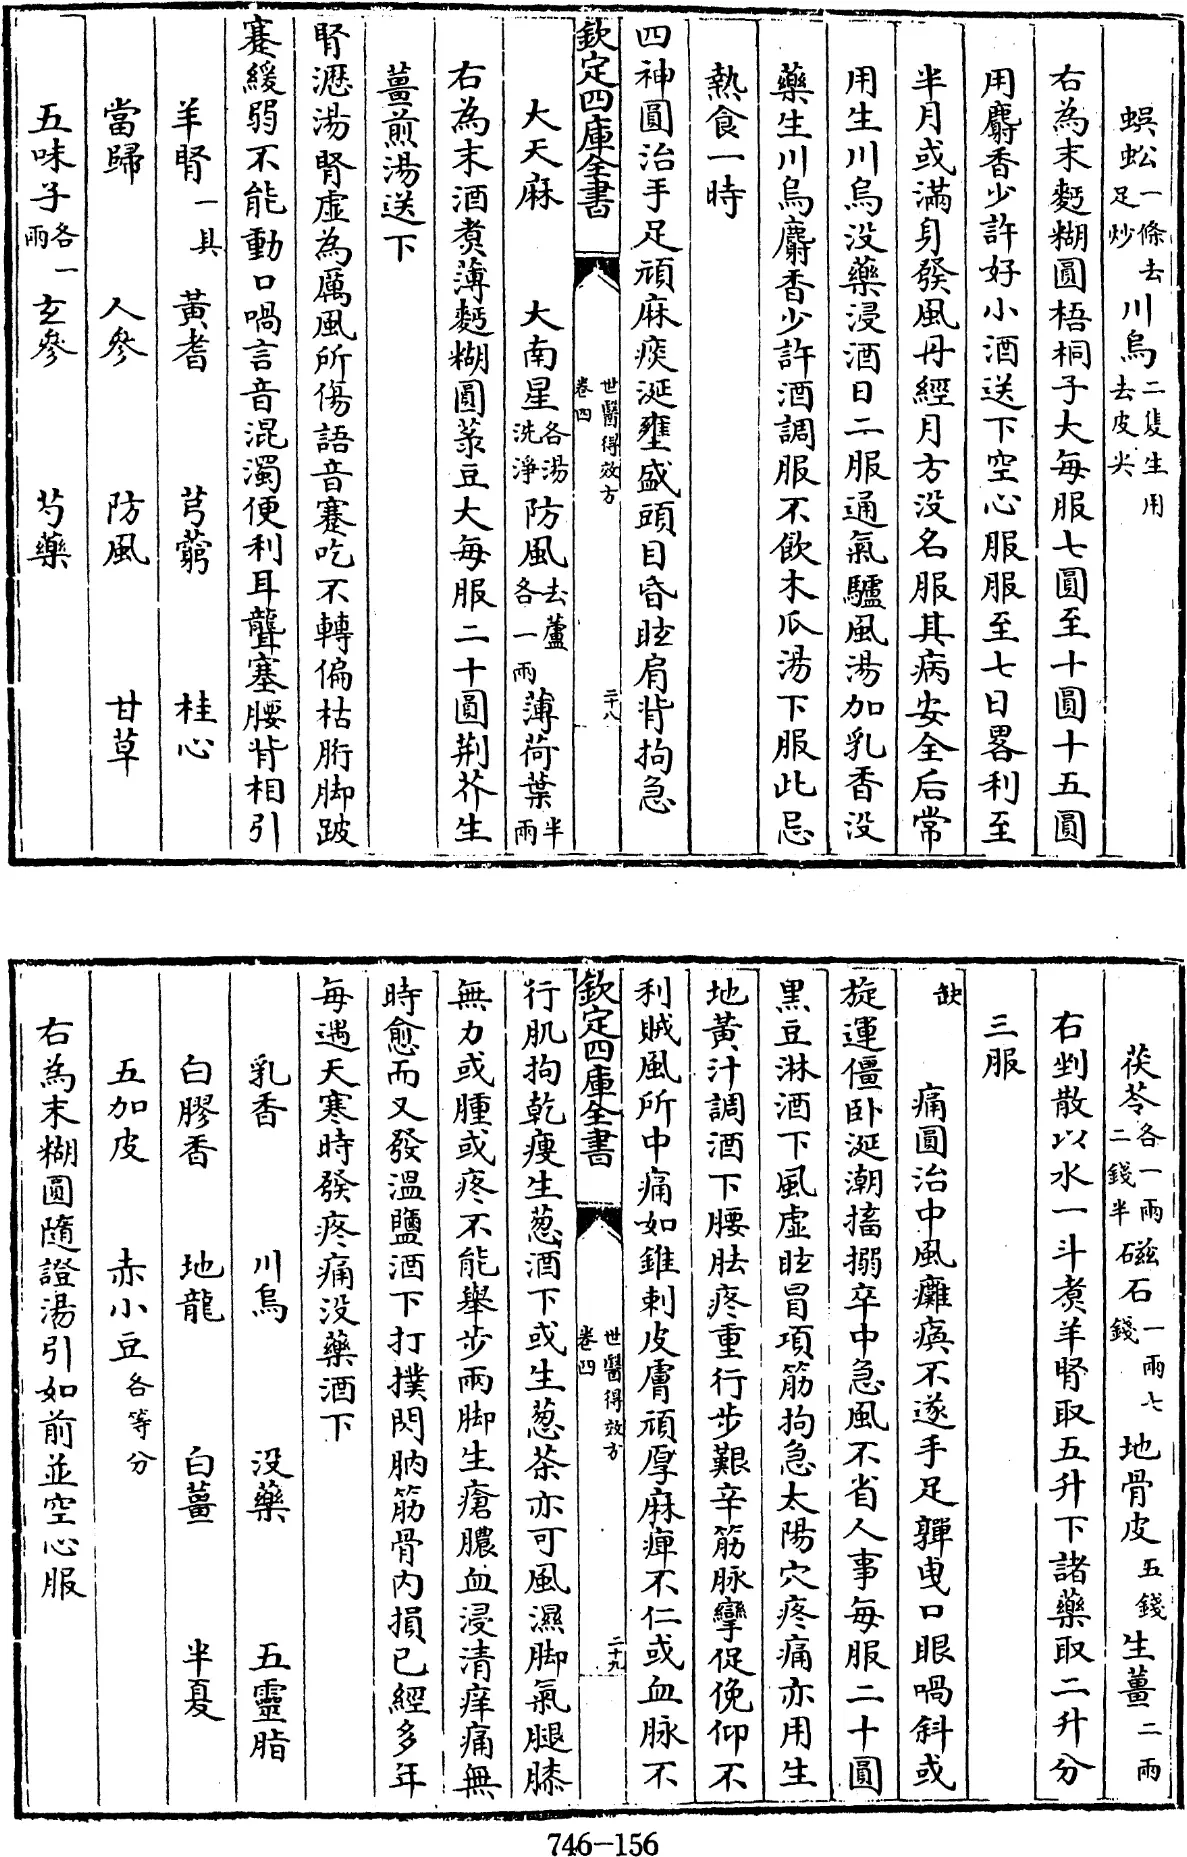 蜈蚣一條去足炒川烏二隻生用去皮尖
右為末麪糊圓梧桐子大每服七圓至十圓十五圓
用麝香少許好小酒送下空心服服至七日畧利至
半月或滿身發風丹經月方没名服其病安全后常
用生川烏没藥浸酒日二服通氣驅風湯加乳香没
藥生川烏麝香少許酒調服不飲木瓜湯下服此忌
熱食一時
四神圓治手足頑麻痰涎壅盛頭目昏眩肩背拘急
欽定四庫全書
世醫得效方
卷四
二十八
大天麻 大南星各湯洗淨防風去蘆各一兩薄荷葉半兩
右為末酒煑薄麪糊圓菉豆大每服二十圓荆芥生
薑煎湯送下
腎瀝湯腎虛為厲風所傷語音蹇吃不轉偏枯胻脚跛
蹇緩弱不能動口喎言音混濁便利耳聾塞腰背相引
羊腎一具 黃耆 芎藭 桂心
當歸 人參 防風 甘草
五味子各一兩 玄參 芍藥
茯苓各一兩二錢半磁石一兩七錢地骨皮五錢生薑二兩
右剉散以水一斗煑羊腎取五升下諸藥取二升分
三服
缺 痛圓治中風癱瘓不遂手足嚲曳口眼喎斜或
旋運僵卧涎潮搐搦卒中急風不省人事每服二十圓
黑豆淋酒下風虛眩冒項筋拘急太陽穴疼痛亦用生
地黃汁調酒下腰胠疼重行步艱辛筋脉攣促俛仰不
利賊風所中痛如錐刺皮膚頑厚麻痺不仁或血脉不
欽定四庫全書
世醫得效方
卷四
二十九
行肌拘乾瘦生葱酒下或生葱茶亦可風濕脚氣腿膝
無力或腫或疼不能舉步兩脚生瘡膿血浸清痒痛無
時愈而又發溫鹽酒下打撲閃肭筋骨内損已經多年
每遇天寒時發疼痛没藥酒下
乳香 川烏 没藥 五靈脂
白膠香 地龍 白薑 半夏
五加皮 赤小豆各等分
右為末糊圓隨證湯引如前並空心服
746-156